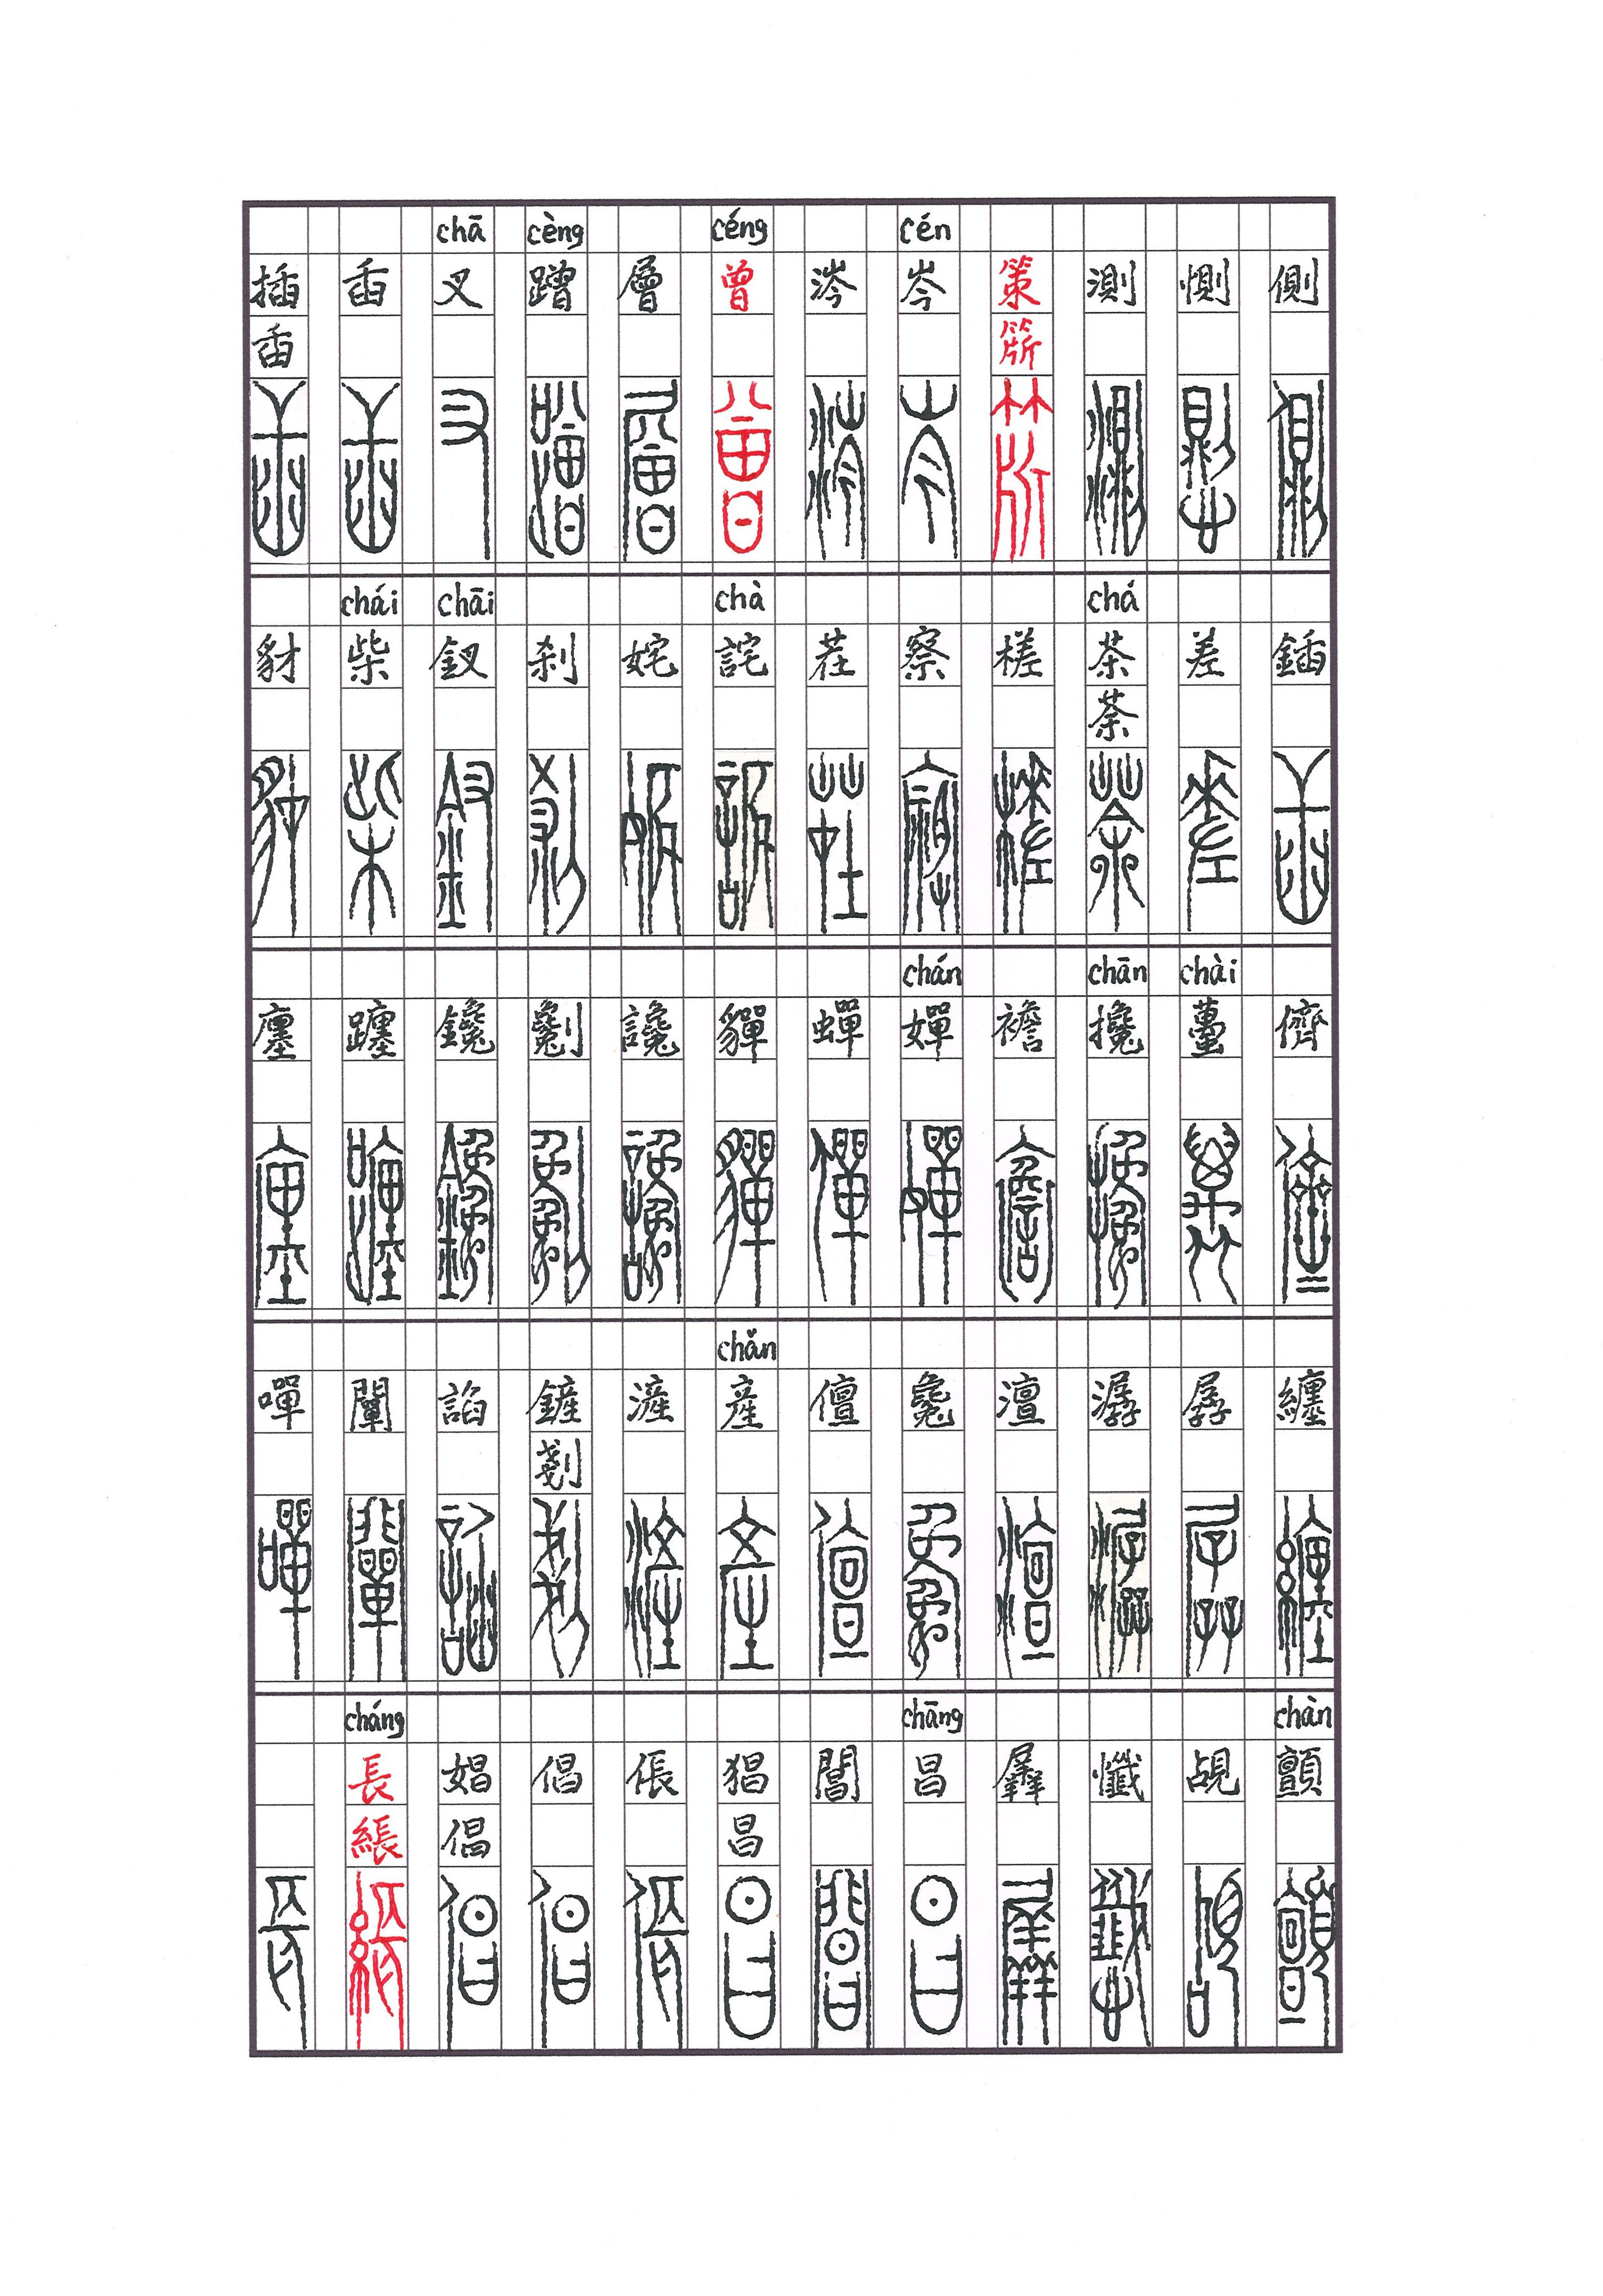 cén céng cèng chā
側 惻 測 策 岑 涔 曾 層 蹭 叉 臿 插
筞 臿
chá chà chāi chái
鍤 差 茶 槎 察 茬 詫 奼 刹 釵 柴 豺
荼
chài chān chán
儕 蠆 攙 襜 嬋 蟬 貚 讒 劖 鑱 躔 廛
chǎn
纏 孱 潺 澶 毚 儃 産 滻 鏟 諂 闡 嘽
剗
chàn chāng cháng
顫 覘 懺 羼 昌 閶 猖 倀 倡 娼 長
昌 倡 緉